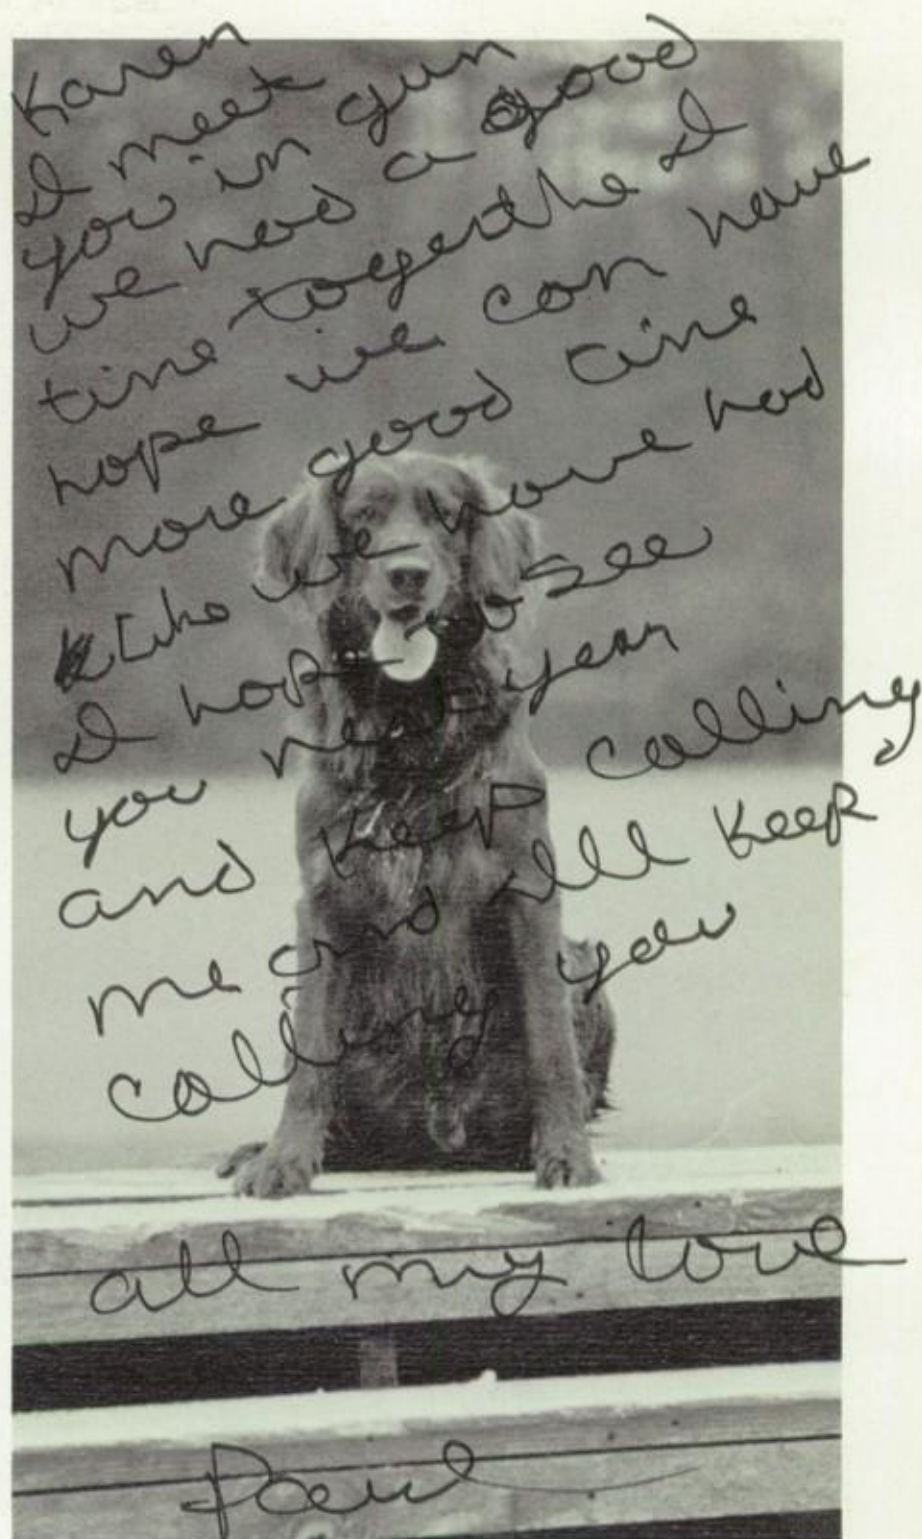 Karen
I meet
you in gun
we had a good
time togerthe I
hope we can have
more good time
like we have had
I hope to see
you next year
and keep calling
me and I'll keep
calling you
all my love
Paul